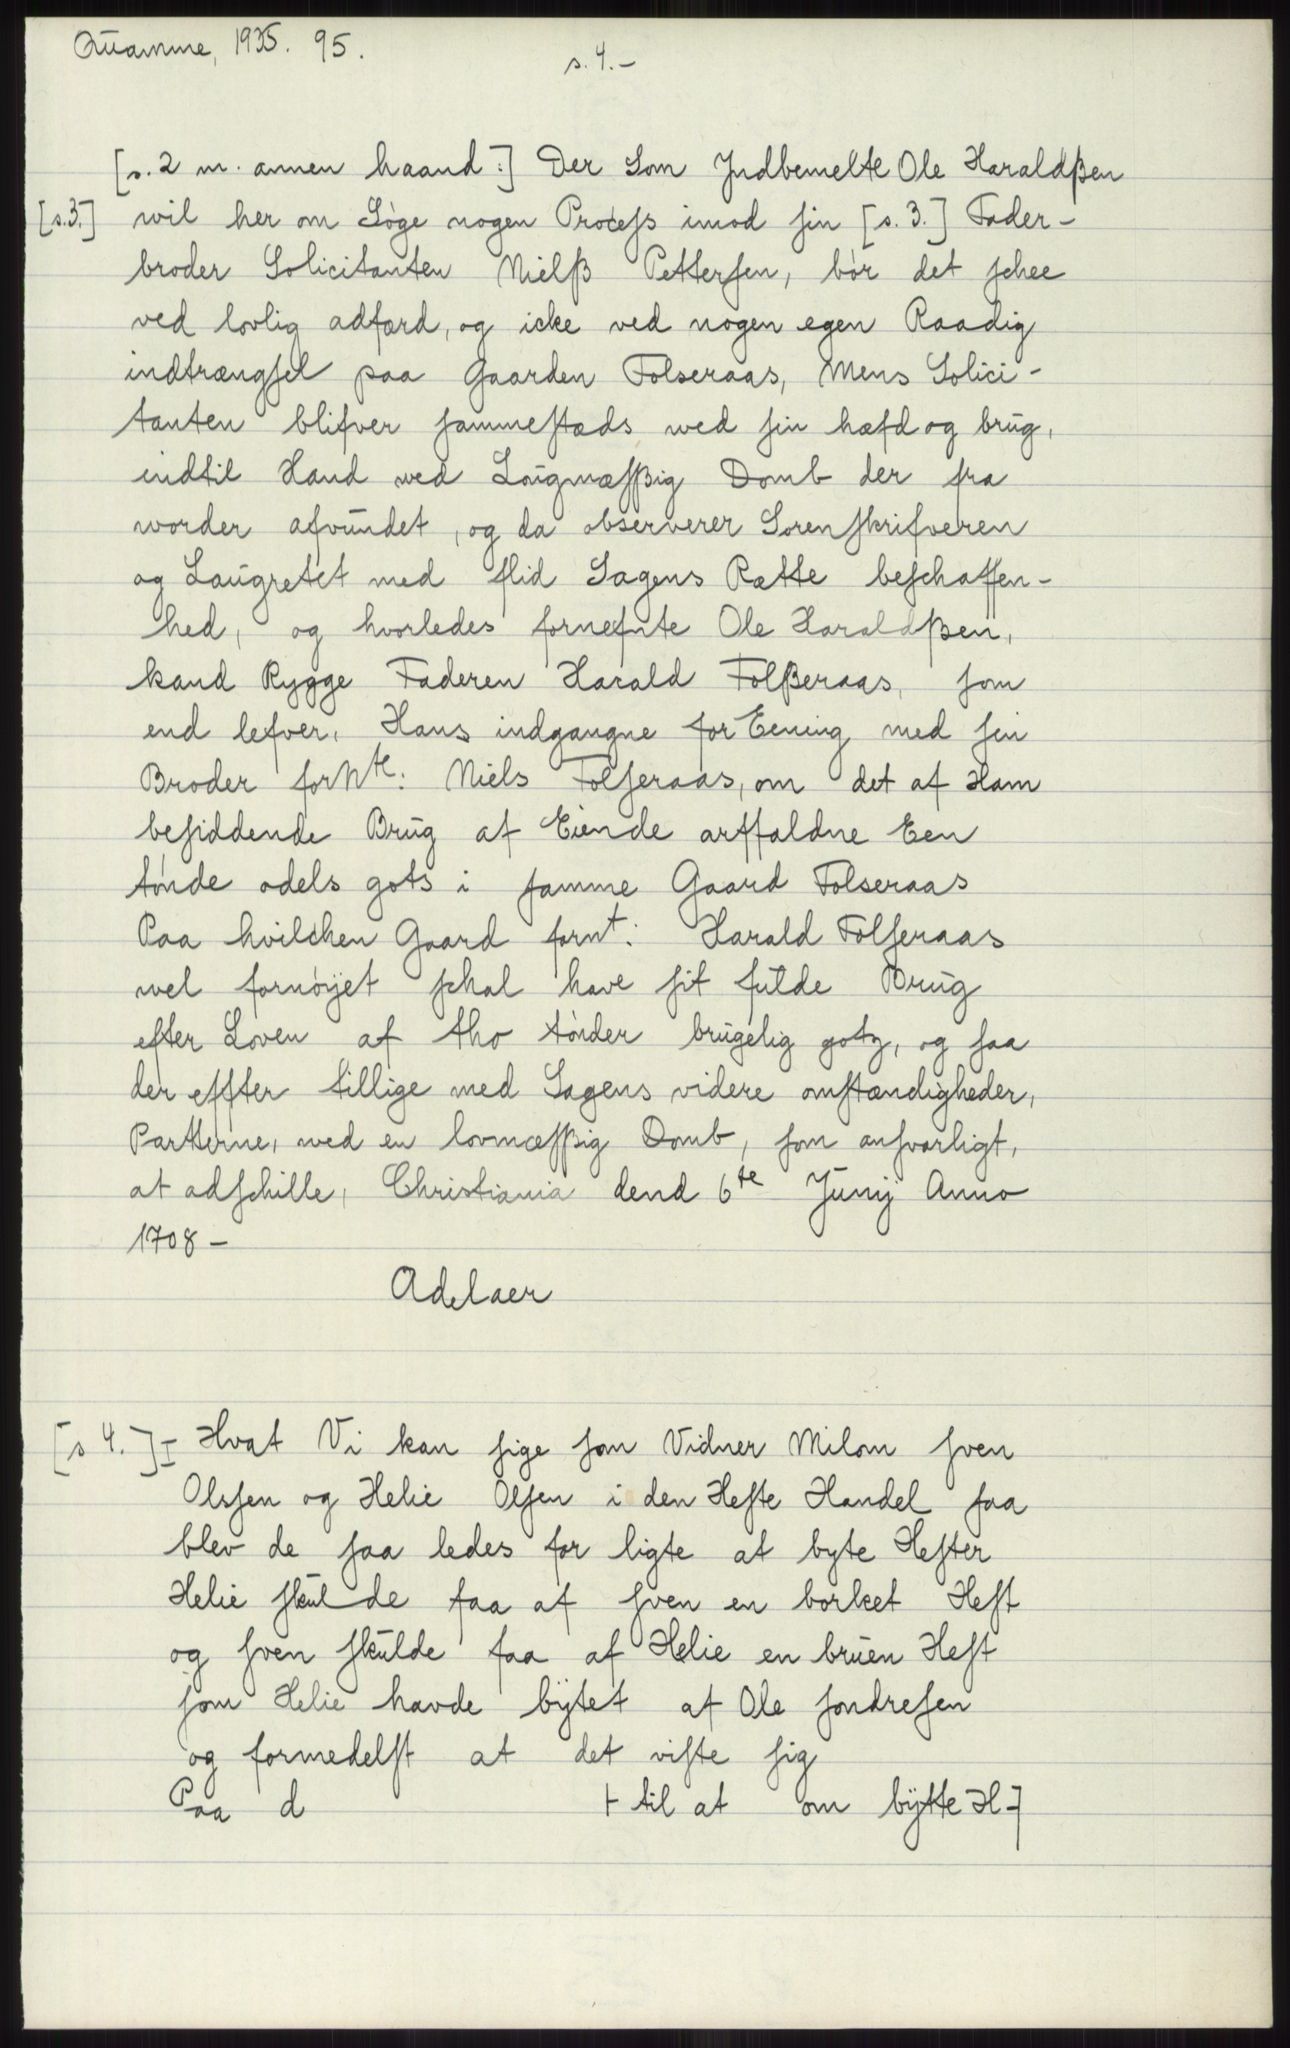 Qüamme, 1935. 95.
s. 4. –
[s. 2 m. annen haand:] Der Som Jndbemelte Ole Haraldßen
[s. 3.] wil her om Söge nogen Procesſs imod ſin [s. 3.] Fader-
broder Solicitanten Nielß Petterſen, bör det ſchee
ved lovlig adfærd, og icke ved nogen egen Raadig
indtrængſel paa Gaarden Folseraas, Mens Solici-
tanten blifver ſammeſtæds ved ſin hæfd og brüg,
indtil Hand ved Loügmæſßig Domb der fra
worder afvündet, og da observerer Sorenſkrifveren
og Laügretet med flid Sagens Rætte beſchaffen-
hed, og hvorledes fornefnte Ole Haraldßen,
kand Rygge Faderen Harald Folßeraas, ſom
end lefver, Hans indgangne for Eening med ſin
Broder forNte: Niels Folſeraas, om det af Ham
beſiddende Brüg af Eiende arffaldne Een
tönde odels gots i ſamme Gaard Folseraas
Paa hvilchen Gaard fornt: Harald Folſeraas
vel fornöyet ſchal have ſit fülde Brüg
efter Loven af tho tönder brügelig gotz, og ſaa
der effter tillige med Sagens videre omſtændigheder,
Partterne, ved en lovmæſßig Domb, ſom anſvarligt,
at adſchille, Christiania dend 6te Jünij Anno
1708 –
Adelaer
[s 4.] I Hvat Vi kan ſige ſom Vidner Milom ſven
Olsſen og Helie Olſen i den Heſte Handel ſaa
blev de ſaa ledes for ligte at byte Heſter
Helie ſkülde faa af ſven en borket Heſt
og ſven ſkülde faa af Helie en brüen Heſt
ſom Helie havde bÿtet af Ole ſondreſen
og formedelſt at det viſte ſig
Paa d ⊦ til at om bÿtte H-]